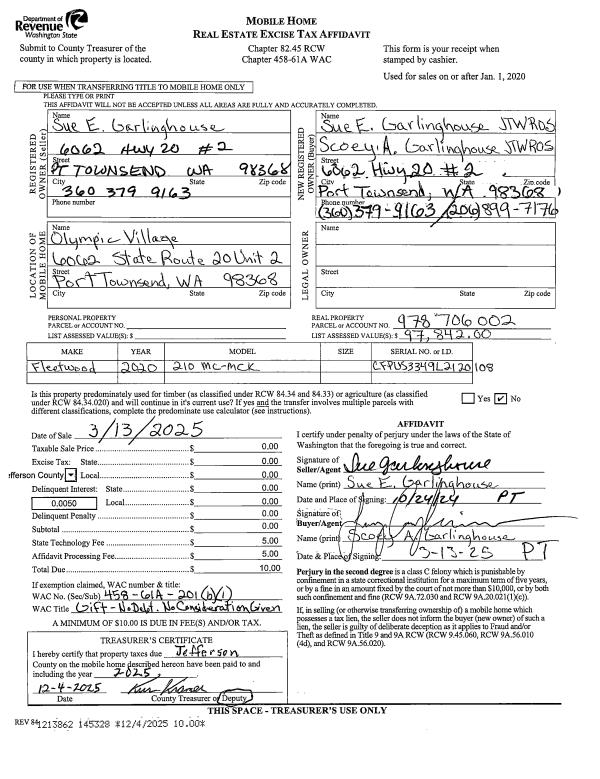 Department of
Revenue
Washington State
MOBILE HOME
REAL ESTATE EXCISE TAX AFFIDAVIT
Submit to County Treasurer of the
county in which property is located.
Chapter 82.45 RCW
Chapter 458-61A WAC
This form is your receipt when
stamped by cashier.
Used for sales on or after Jan. 1, 2020
FOR USE WHEN TRANSFERRING TITLE TO MOBILE HOME ONLY
PLEASE TYPE OR PRINT
THIS AFFIDAVIT WILL NOT BE ACCEPTED UNLESS ALL AREAS ARE FULLY AND ACCURATELY COMPLETED.
REGISTERED OWNER (Seller)
Name
Sue E. Garlinghouse
6062 Hwy 20 #2
Street
PT TOWNSEND WA 98368
City State Zip code
360 379 9163
Phone number
NEW REGISTERED OWNER (Buyer)
Name
Sue E. Garlinghouse JTWROS
Scoey A. Garlinghouse JTWROS
Street
6062 Hwy 20 #2
City State Zip code
Port Townsend, WA 98368
Phone number
(360)379-9163 /(206)899-7176
LOCATION OF MOBILE HOME
Name
Olympic Village
6062 State Route 20 Unit 2
Street
Port Townsend, WA 98368
City State Zip code
LEGAL OWNER
Name
Street
City State Zip code
PERSONAL PROPERTY
PARCEL or ACCOUNT NO.
LIST ASSESSED VALUE(S): $
REAL PROPERTY
PARCEL or ACCOUNT NO. 978 706 002
LIST ASSESSED VALUE(S): $ 97,842.00
MAKE YEAR MODEL SIZE SERIAL NO. or I.D.
Fleetwood 2020 210 MC-MCK CFPUS3349L2120108
Is this property predominately used for timber (as classified under RCW 84.34 and 84.33) or agriculture (as classified
under RCW 84.34.020) and will continue in it's current use? If yes and the transfer involves multiple parcels with
different classifications, complete the predominate use calculator (see instructions).
Yes ✓ No
Date of Sale 3/13/2025
Taxable Sale Price $ 0.00
Excise Tax: State $ 0.00
fferson County Local $ 0.00
Delinquent Interest: State $ 0.00
0.0050 Local $ 0.00
Delinquent Penalty $ 0.00
Subtotal $ 0.00
State Technology Fee $ 5.00
Affidavit Processing Fee $ 5.00
Total Due $ 10.00
If exemption claimed, WAC number & title:
WAC No. (Sec/Sub) 458-61A-201(b)(1)
WAC Title Gift - No Debt. No Consideration Given
A MINIMUM OF $10.00 IS DUE IN FEE(S) AND/OR TAX.
AFFIDAVIT
I certify under penalty of perjury under the laws of the State of
Washington that the foregoing is true and correct.
Signature of
Seller/Agent Sue Garlinghouse
Name (print) Sue E. Garlinghouse
Date and Place of Signing: 10/24/24 PT
Signature of
Buyer/Agent
Name (print) Scoey A. Garlinghouse
Date & Place of Signing: 03-13-25 PT
Perjury in the second degree is a class C felony which is punishable by
confinement in a state correctional institution for a maximum term of five years,
or by a fine in an amount fixed by the court of not more than $10,000, or by both
such confinement and fine (RCW 9A.72.030 and RCW 9A.20.021(1)(c)).
If, in selling (or otherwise transferring ownership of) a mobile home which
possesses a tax lien, the seller does not inform the buyer (new owner) of such a
lien, the seller is guilty of deliberate deception as it applies to Fraud and/or
Theft as defined in Title 9 and 9A RCW (RCW 9.45.060, RCW 9A.56.010
(4d), and RCW 9A.56.020).
TREASURER'S CERTIFICATE
I hereby certify that property taxes due Jefferson
County on the mobile home described hereon have been paid to and
including the year 2025.
12-4-2025
Date County Treasurer or Deputy
THIS SPACE - TREASURER'S USE ONLY
REV 84
1213862 145328 *12/4/2025 10.00*